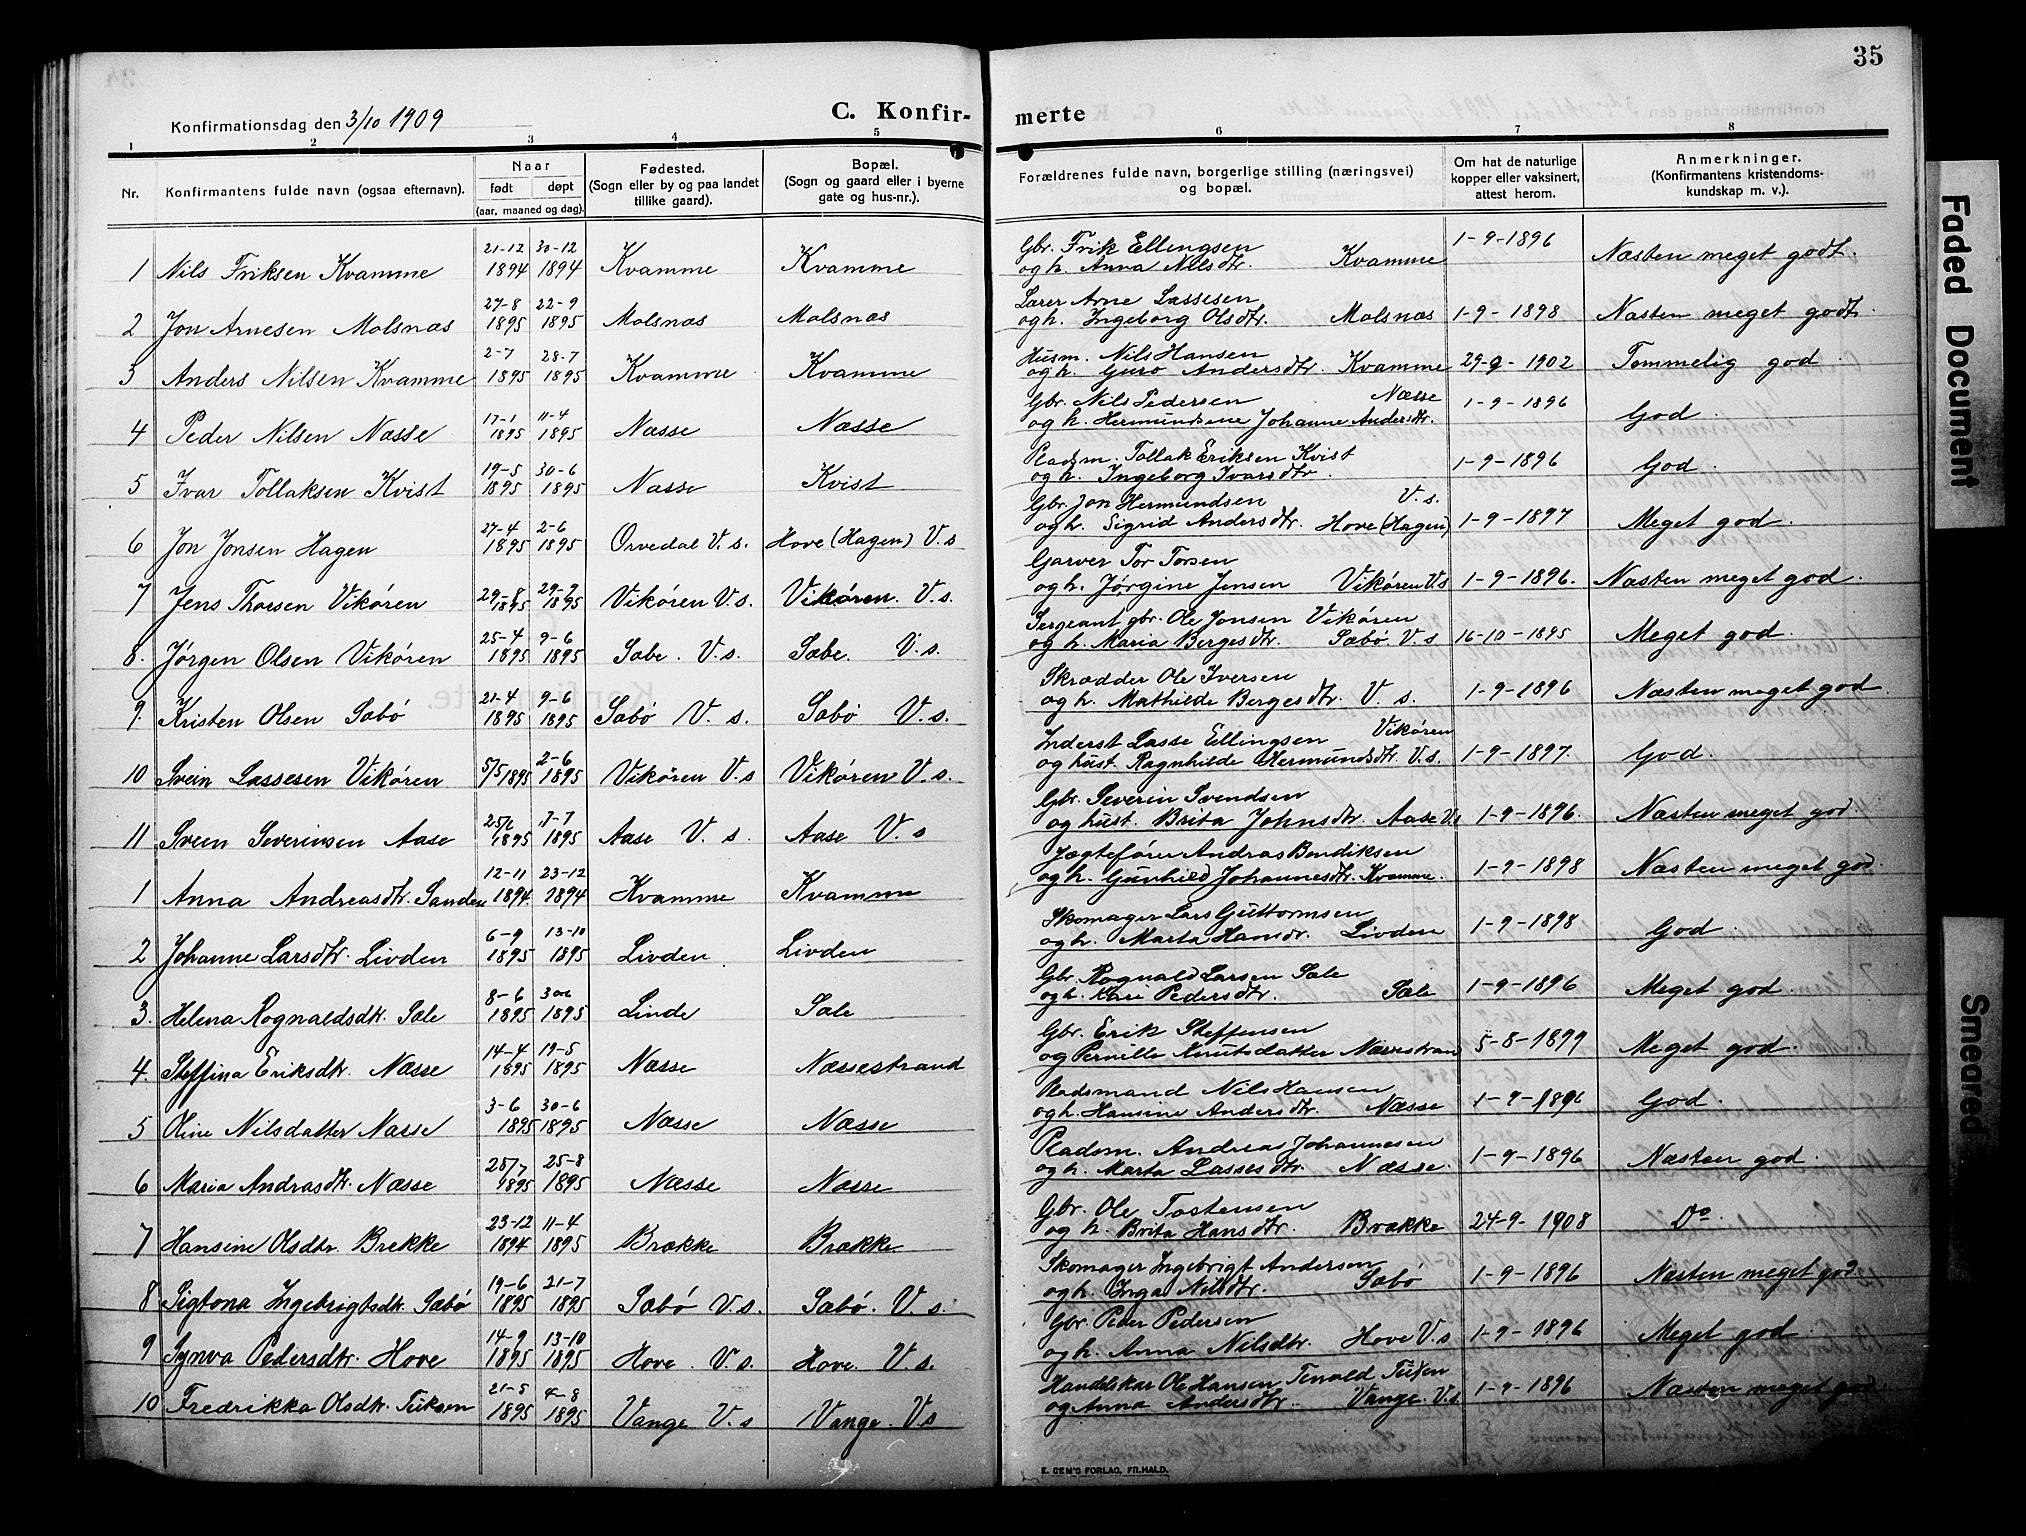 35
Konfirmationsdag den 3/10 1909
C. Konfirmerte
1 2 3 4 5 6 7 8
Nr.
Konfirmantens fulde navn (ogsaa efternavn).
Naar
født døpt
(aar, maaned og dag).
Fødested.
(Sogn eller by og paa landet
tillike gaard).
Bopæl.
(Sogn og gaard eller i byerne
gate og hus-nr.).
Forældrenes fulde navn, borgerlige stilling (næringsvei)
og bopæl.
Om hat de naturlige
kopper eller vaksinert,
attest herom.
Anmerkninger.
(Konfirmantens kristendoms-
kundskap m. v.).
21-12 30-12 Gbr. Erik Ellingsen 1-9-1896
1 Nils Eriksen Kvamme 1894 1894 Kvamme Kvamme og h. Anna Nilsdtr. Kvamme Næsten meget godt.
27-8 22-9 Lærer Arne Lassesen
2 Jon Arnesen Malsnæs 1895 1895 Malsnæs Malsnæs og h. Ingeborg Olsdtr. Malsnæs 1-9-1898 Næsten meget godt.
2-7 28-7 Husm. Nils Hansen
3 Anders Nilsen Kvamme 1895 1895 Kvamme Kvamme og h. Guro Andersdtr. Kvamme 29-9-1902 Temmelig god.
17-1 11-4 Gbr. Nils Pedersen Næsse 1-9-1896
4 Peder Nilsen Næsse 1895 1895 Næsse Næsse og h. Hermundine Johanne Andersdtr. God.
19-5 30-6 Pladsm. Tollak Eriksen Kvist 1-9-1896
5 Ivar Tollaksen Kvist 1895 1895 Næsse Kvist og h. Ingeborg Ivarsdtr. God.
27-4 2-6 Gbr. Jon Hermundsen V. s.
6 Jon Jonsen Hagen 1895 1895 Orvedal V. s. Hove (Hagen) V. s og h. Sigrid Andersdtr. Hove (Hagen) 1-9-1897 Meget god.
29-8 29-9 Garver Tor Torsen
7 Jens Thorsen Vikøren 1895 1895 Vikøren V. s. Vikøren. V. s. og h. Jørgine Jensen Vikøren V.s 1-9-1896. Næsten meget god.
25-4 9-6 Sergeant gbr. Ole Jonsen Vikøren
8. Jørgen Olsen Vikøren 1895 1895 Sæbe. V. s. Sæbe. V. s. og h. Maria Bergesdtr. Sæbø. V. s 16-10-1895 Meget god.
21-4 9-6 Skrædder Ole Iversen
9. Kristen Olsen Sæbø 1895 1895 Sæbø V. s. Sæbø V. s. og h. Mathilde Bergesdtr. V. s. 1-9-1896 Næsten meget god.
2-6 Inderst Lasse Ellingsen Vikøren
10 Svein Lassesen Vikøren 5/5 1895 1895 Vikøren V. s Vikøren V. s. og hust. Ragnhilde Hermundsdtr. V. s. 1-9-1897. God.
25/6 7-7 Gbr. Severin Svendsen
11 Svein Severinsen Aase 1895 1895 Aase V. s. Aase V. s og hust. Brita Johnsdtr. Aase V.s 1-9-1896. Næsten meget god.
12-11 23-12 Jægtefører Andras Bendiksen
1 Anna Andreasdtr. Sanden 1894. 1894 Kvamme Kvamme og h. Gunhild Johannesdtr. Kvamme. 1-9-1898 Næsten meget god.
6-9 13-10 Skomager Lars Guttormsen
2 Johanne Larsdtr. Livden 1895 1895 Livden Livden og h. Marta Hansdr. Livden 1-9-1898 God.
8-6 30-6 Gbr. Rognald Larsen Sæle
3. Helena Rognaldsdtr. Sæle 1895 1895 Linde Sæle og h. Kari Pedersdtr. Sæle 1-9-1896 Meget god.
14-4 19-5 Gbr. Erik Steffensen
4. Steffina Eriksdtr. Næsse 1895 1895 Næsse Næssestrand og Pernille Knutsdatter Næssestran 5-8-1899 Meget god.
3-6 30-6 Pladsmand Nils Hansen
5 Oline Nilsdatter Næsse 1895 1895 Næsse Næsse og h. Hansine Andersdtr. Næsse 1-9-1896 God.
28/7 25-8 Pladsm. Andrea Johannesen
6 Maria Andrasdtr. Næsse 1895 1895 Næsse Næsse og h. Marta Lassesdtr. Næsse. 1-9-1896 Næsten god.
23-12 11-4 Gbr. Ole Tostensen
7 Hansine Olsdtr. Brekke 1894 1895 Brække Brække og h. Brita Hansdtr. Brække 24-9-1908 Do
19-6 21-7 Skomager Ingebrigt Andersen
8 Sigtona Ingebrigtsdtr. Sæbø 1895 1895 Sæbø V. s. Sæbø. V. s. og h. Inga Nilsdtr. Sæbø 1-9-1896 Næsten meget god
14-9 13-10 Gbr. Peder Pedersen
9 Synva Pedersdtr. Hove 1895 1895 Hove. V. s. Hove. V. s. og h. Anna Nilsdtr. Hove V. s 1-9-1896 Meget god.
21-5 4-8 Handelskar Ole Hansen Tuksen
10 Fredrikka Olsdtr. Tuksen 1895 1895 Vange V. s Vange. V s og Anna Andersdtr. Vange. V. s. 1-9-1896 Næsten meget god.
E. SEM'S FORLAG, FR.HALD.
Faded Document
Smeared